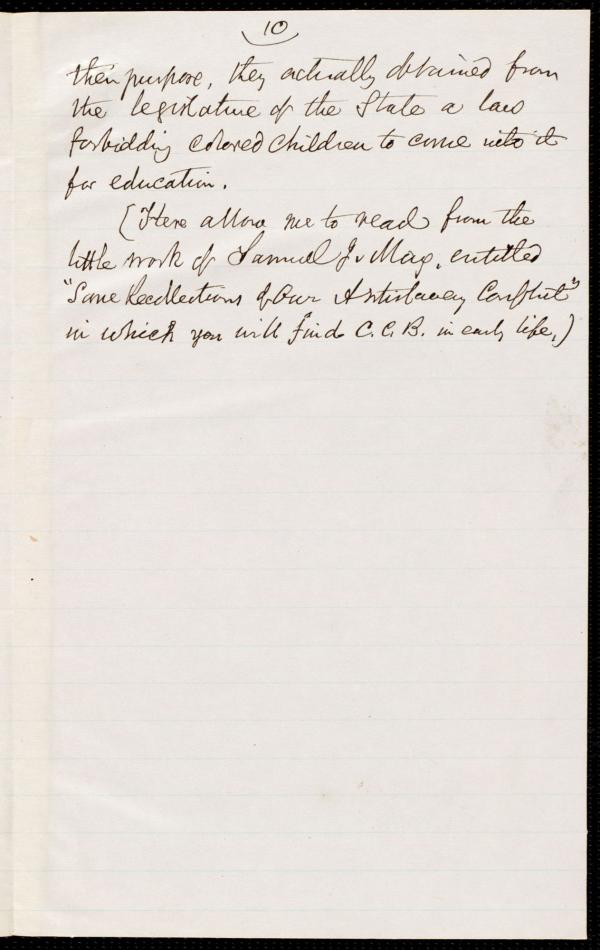 10
their purpose, they actually obtained from
the legislature of the State a law
forbidding colored children to come into it
for education.
(Here allow me to read from the
little work of Samuel J. May, entitled
"Some Recollections of Our Antislavery Conflict"
in which you will find C. C. B. in early life.)